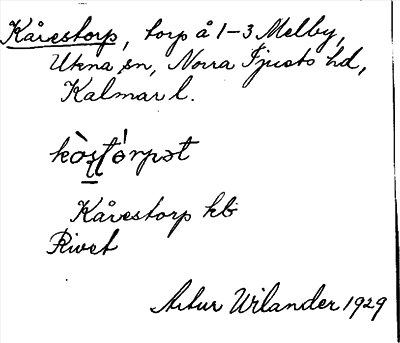 Kårestorp, torp å 1-3 Melby,
Ukna sn, Norra Tjusts hd,
Kalmar l.
kòsṭórpət
Kårestorp kb
Rivet
Artur Wilander 1929